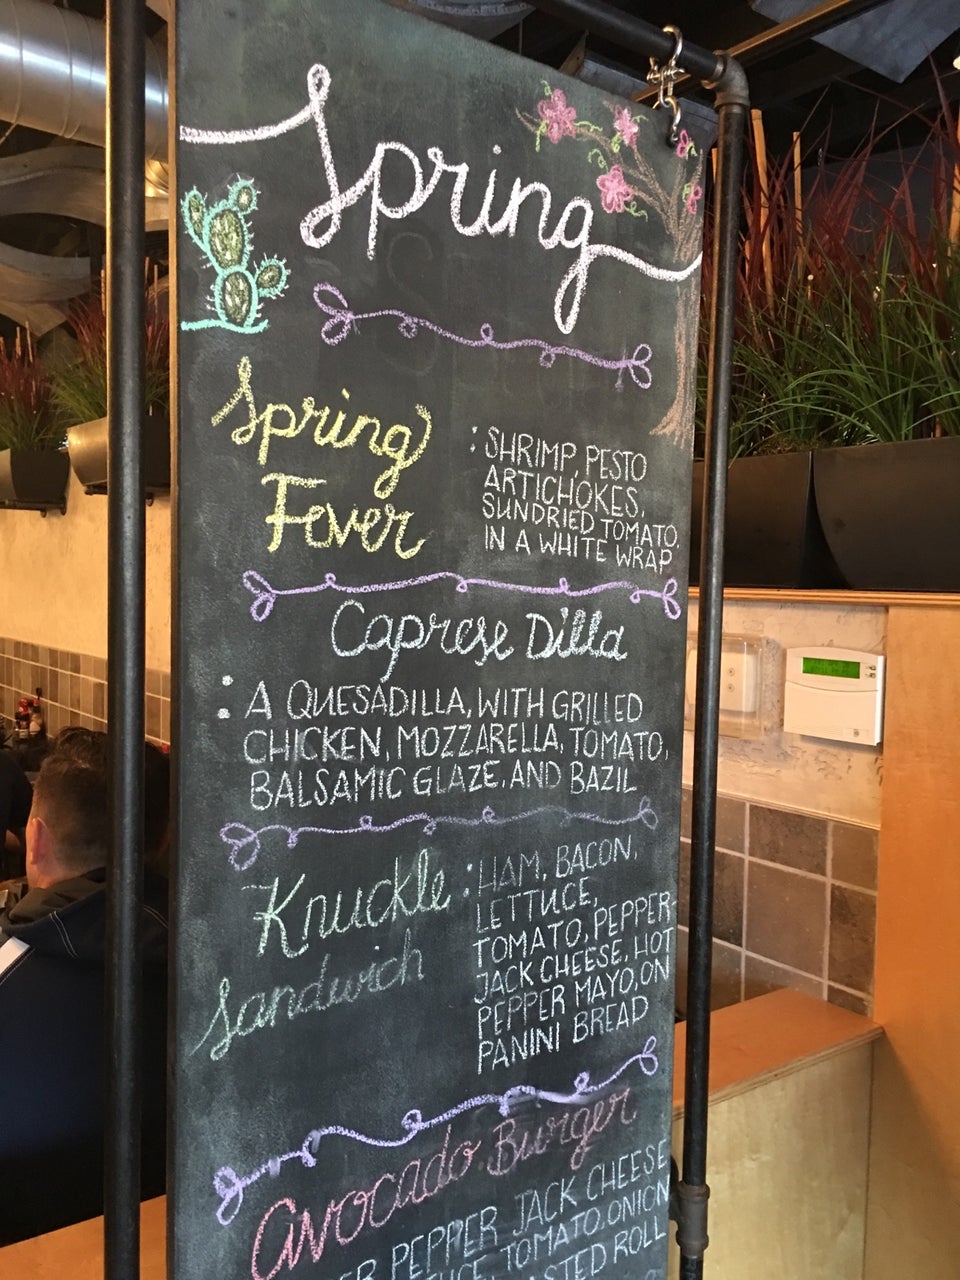 Spring
Spring
Fever
: SHRIMP, PESTO
ARTICHOKES,
SUNDRIED TOMATO,
IN A WHITE WRAP
Caprese Dilla
: A QUESADILLA, WITH GRILLED
CHICKEN, MOZZARELLA, TOMATO,
BALSAMIC GLAZE, AND BAZIL
Knuckle
Sandwich
: HAM, BACON,
LETTUCE,
TOMATO, PEPPER-
JACK CHEESE, HOT
PEPPER MAYO, ON
PANINI BREAD
Avocado Burger
PEPPER JACK CHEESE
TOMATO, ONION
ROLL